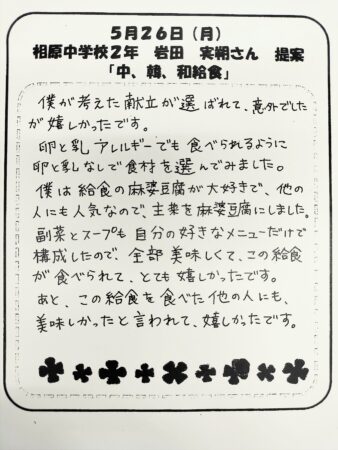 5月26日(月)
相原中学校2年 岩田 実朔さん 提案
「中、韓、和給食」
僕が考えた献立が選ばれて、意外でした
が嬉しかったです。
卵と乳アレルギーでも食べられるように
卵と乳なしで食材を選んでみました。
僕は給食の麻婆豆腐が大好きで、他の
人にも人気なので、主菜を麻婆豆腐にしました。
副菜とスープも自分の好きなメニューだけで
構成したので、全部美味しくて、この給食
が食べられて、とても嬉しかったです。
あと、この給食を食べた他の人にも、
美味しかったと言われて、嬉しかったです。